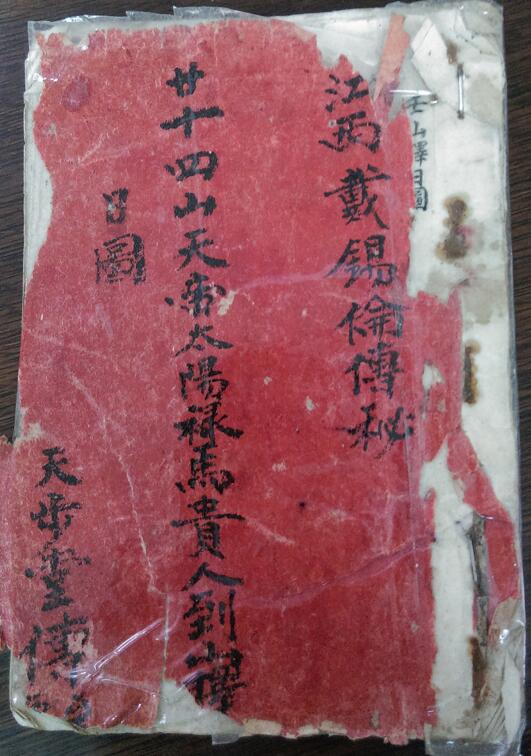 壬山擇日圖
江西戴錫倫傳秘
廿十四山天帝太陽祿馬貴人到山擇
日圖
天步堂傳